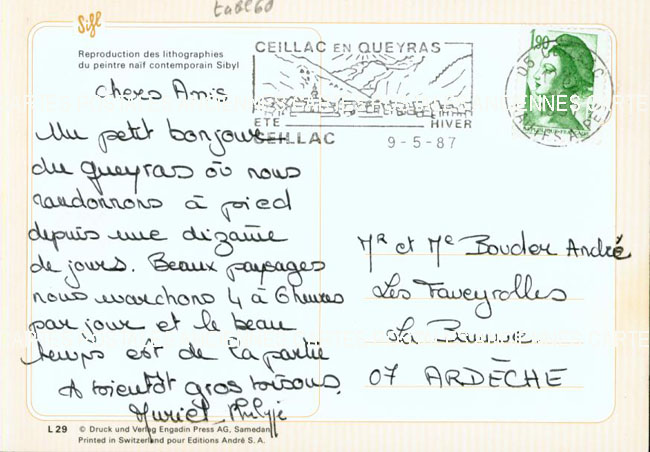 table60
Sifl
Reproduction des lithographies
du peintre naïf contemporain Sibyl
CEILLAC EN QUEYRAS
ETE
HIVER
CEILLAC
9-5-87
1,90
HAUTES ALPES
Chers Amis
Un petit bonjour
du Queyras où nous
randonnons à pied
depuis une dizaine
de jours. Beaux paysages
nous marchons 4 à 6 heures
par jour et le beau
temps est de la partie
A bientôt gros bisous.
Muriel Philippe
Mr et Me Bouder André
Les Faveyrolles
La
07 ARDÈCHE
L 29 © Druck und Verlag Engadin Press AG, Samedan
Printed in Switzerland pour Editions André S.A.